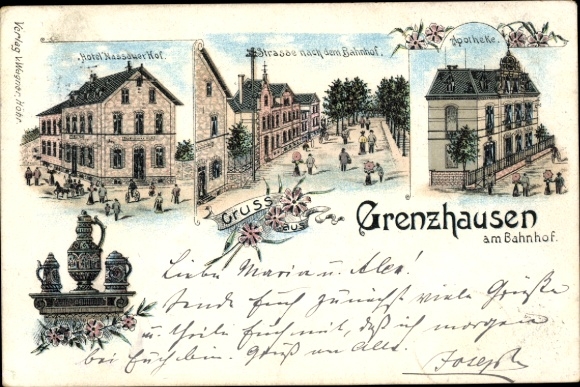 Verlag v. Wegner, Höhr.
Hotel Nassauer Hof.
Strasse nach dem Bahnhof.
Apotheke.
Gruss
aus
Grenzhausen
am Bahnhof.
Liebe Maria u. Alex!
Sende Euch zunächst viele Grüße
u. theile Euch mit, daß ich morgen
bei Euch bin. Gruß an Alle.
Joseph